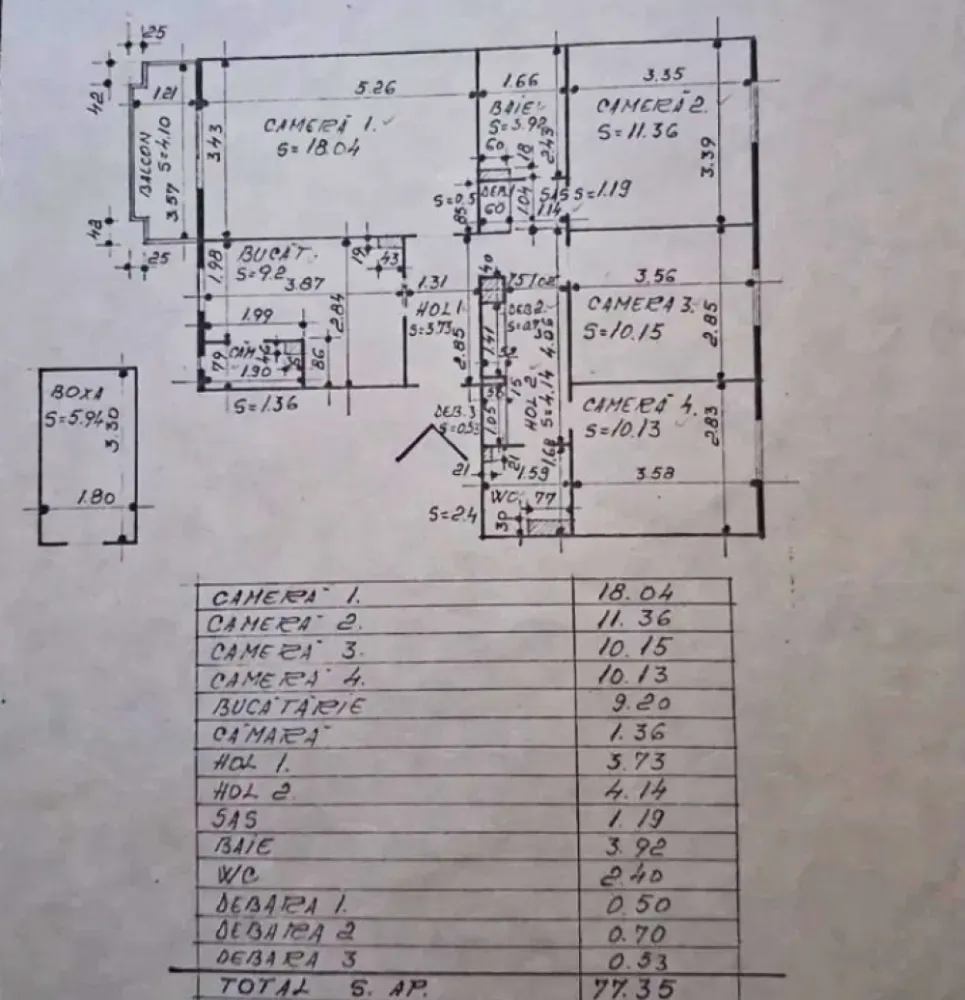 25
42
1.21
BALCON
S=4.10
3.57
48
25
5.26
CAMERĂ 1.
S=18.04
3.43
1.66
BAIE
S=3.92
60
18
2.43
3.35
CAMERĂ 2.
S=11.36
3.39
S=0.5
DEB.1
60
85
1.04
SAS S=1.19
1.14
BUCĂT.
S=9.2
1.98
3.87
19
43
2.84
1.99
CĂM.
46
1.90
79
86
S=1.36
1.31
HOL 1.
S=3.73
2.85
40
DEB2.
1.41
15
HOL 2
S=4.14
4.06
3.56
CAMERA 3.
S=10.15
2.85
CAMERĂ 4.
S=10.13
2.83
3.58
DEB.3
S=0.53
1.05
21
21
1.59
1.68
WC.
77
S=2.4
30
BOXA
S=5.94
3.30
1.80
CAMERĂ 1. 18.04
CAMERĂ 2. 11.36
CAMERĂ 3. 10.15
CAMERĂ 4. 10.13
BUCĂTĂRIE 9.20
CĂMARĂ 1.36
HOL 1. 3.73
HOL 2. 4.14
SAS 1.19
BAIE 3.92
WC 2.40
DEBARA 1. 0.50
DEBARA 2 0.70
DEBARA 3 0.53
TOTAL S. AP. 77.35